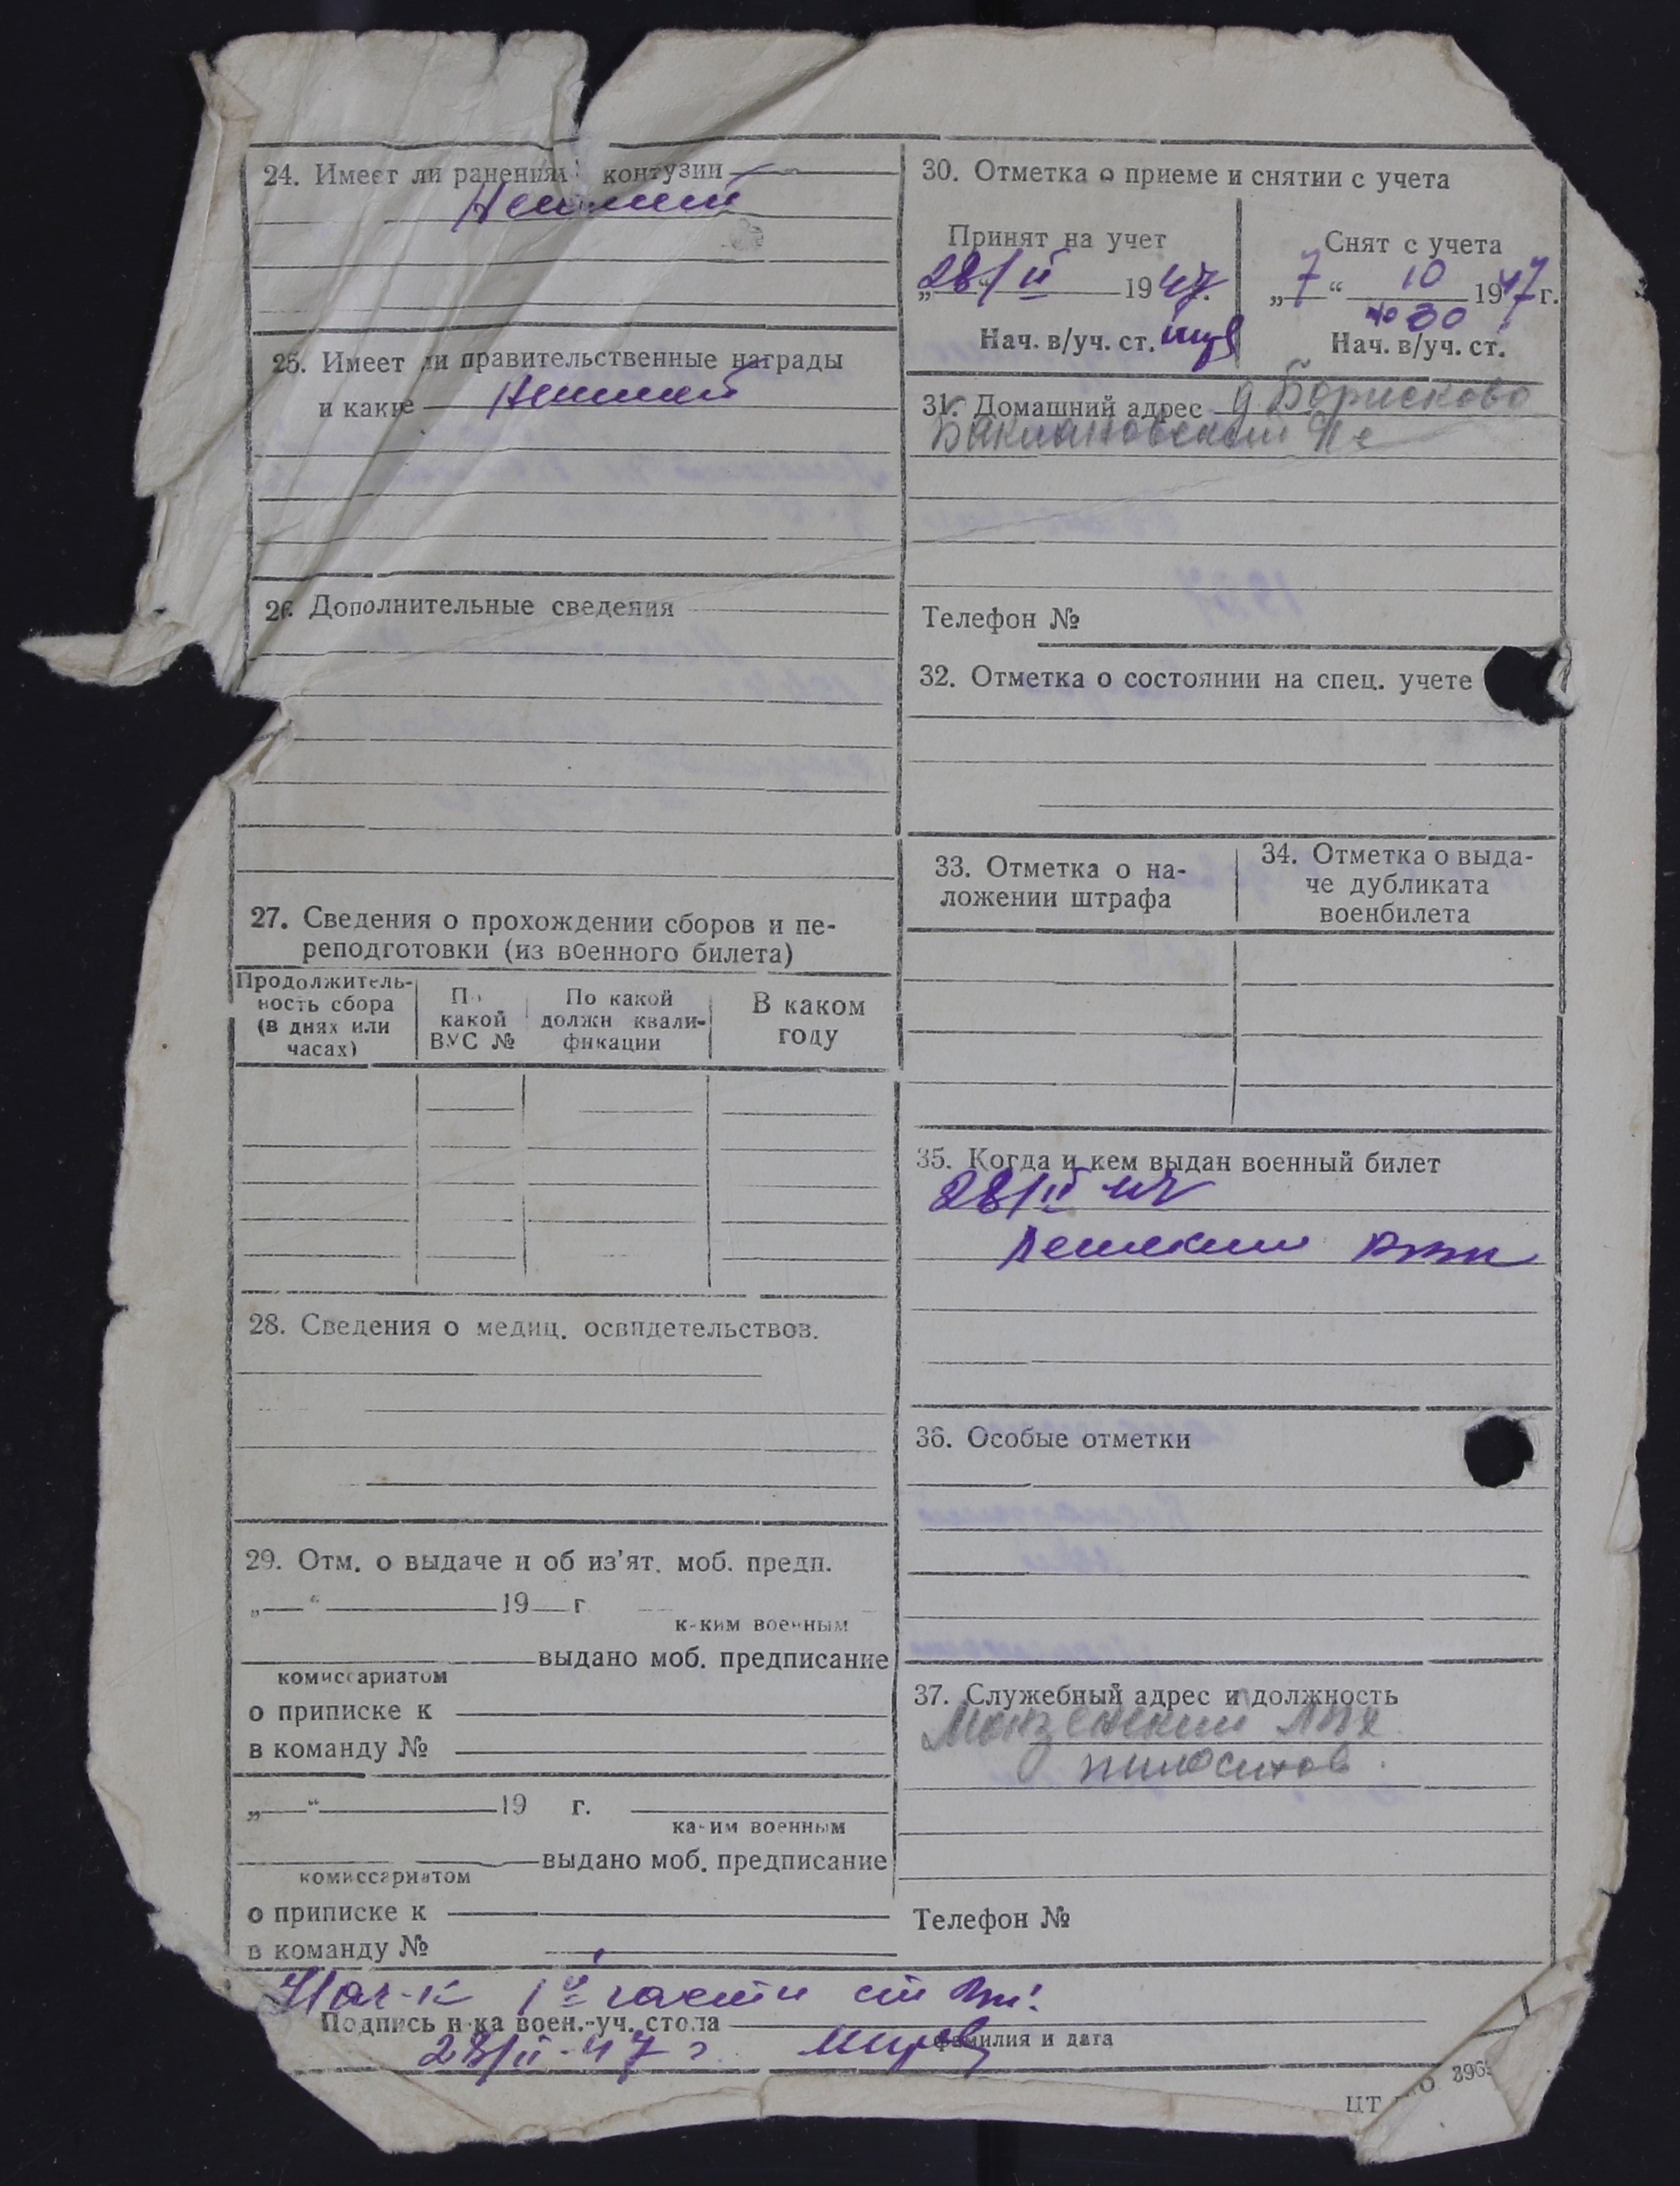 24. Имеет ли ранения контузии
Не имеет
25. Имеет ли правительственные награды
и какие Не имеет
26. Дополнительные сведения
27. Сведения о прохождении сборов и пе-
реподготовки (из военного билета)
Продолжитель-
ность сбора
(в днях или
часах)
По
какой
ВУС №
По какой
должн квали-
фикации
В каком
году
28. Сведения о медиц. освидетельствов.
29. Отм. о выдаче и об из'ят. моб. предп.
„ “ 19 г.
каким военным
выдано моб. предписание
комиссариатом
о приписке к
в команду №
„ “ 19 г.
каким военным
выдано моб. предписание
комиссариатом
о приписке к
в команду №
30. Отметка о приеме и снятии с учета
Принят на учет
„28/II“ 1947г.
Нач. в/уч. ст.
Снят с учета
„7“ 10 1947г.
№ 30
Нач. в/уч. ст.
31. Домашний адрес д Борисково
Баклановский
Телефон №
32. Отметка о состоянии на спец. учете
33. Отметка о на-
ложении штрафа
34. Отметка о выда-
че дубликата
военбилета
35. Когда и кем выдан военный билет
28/II 47
36. Особые отметки
37. Служебный адрес и должность
Монзенский ЛПХ
Телефон №
Нач-к 1й части
Подпись н-ка воен.-уч. стола
28/II-47 г.
фамилия и дата
ЦТ